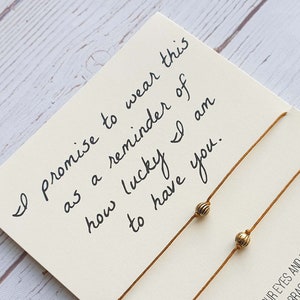 I promise to wear this
as a reminder of
how lucky I am
to have you.
UR EYES AND